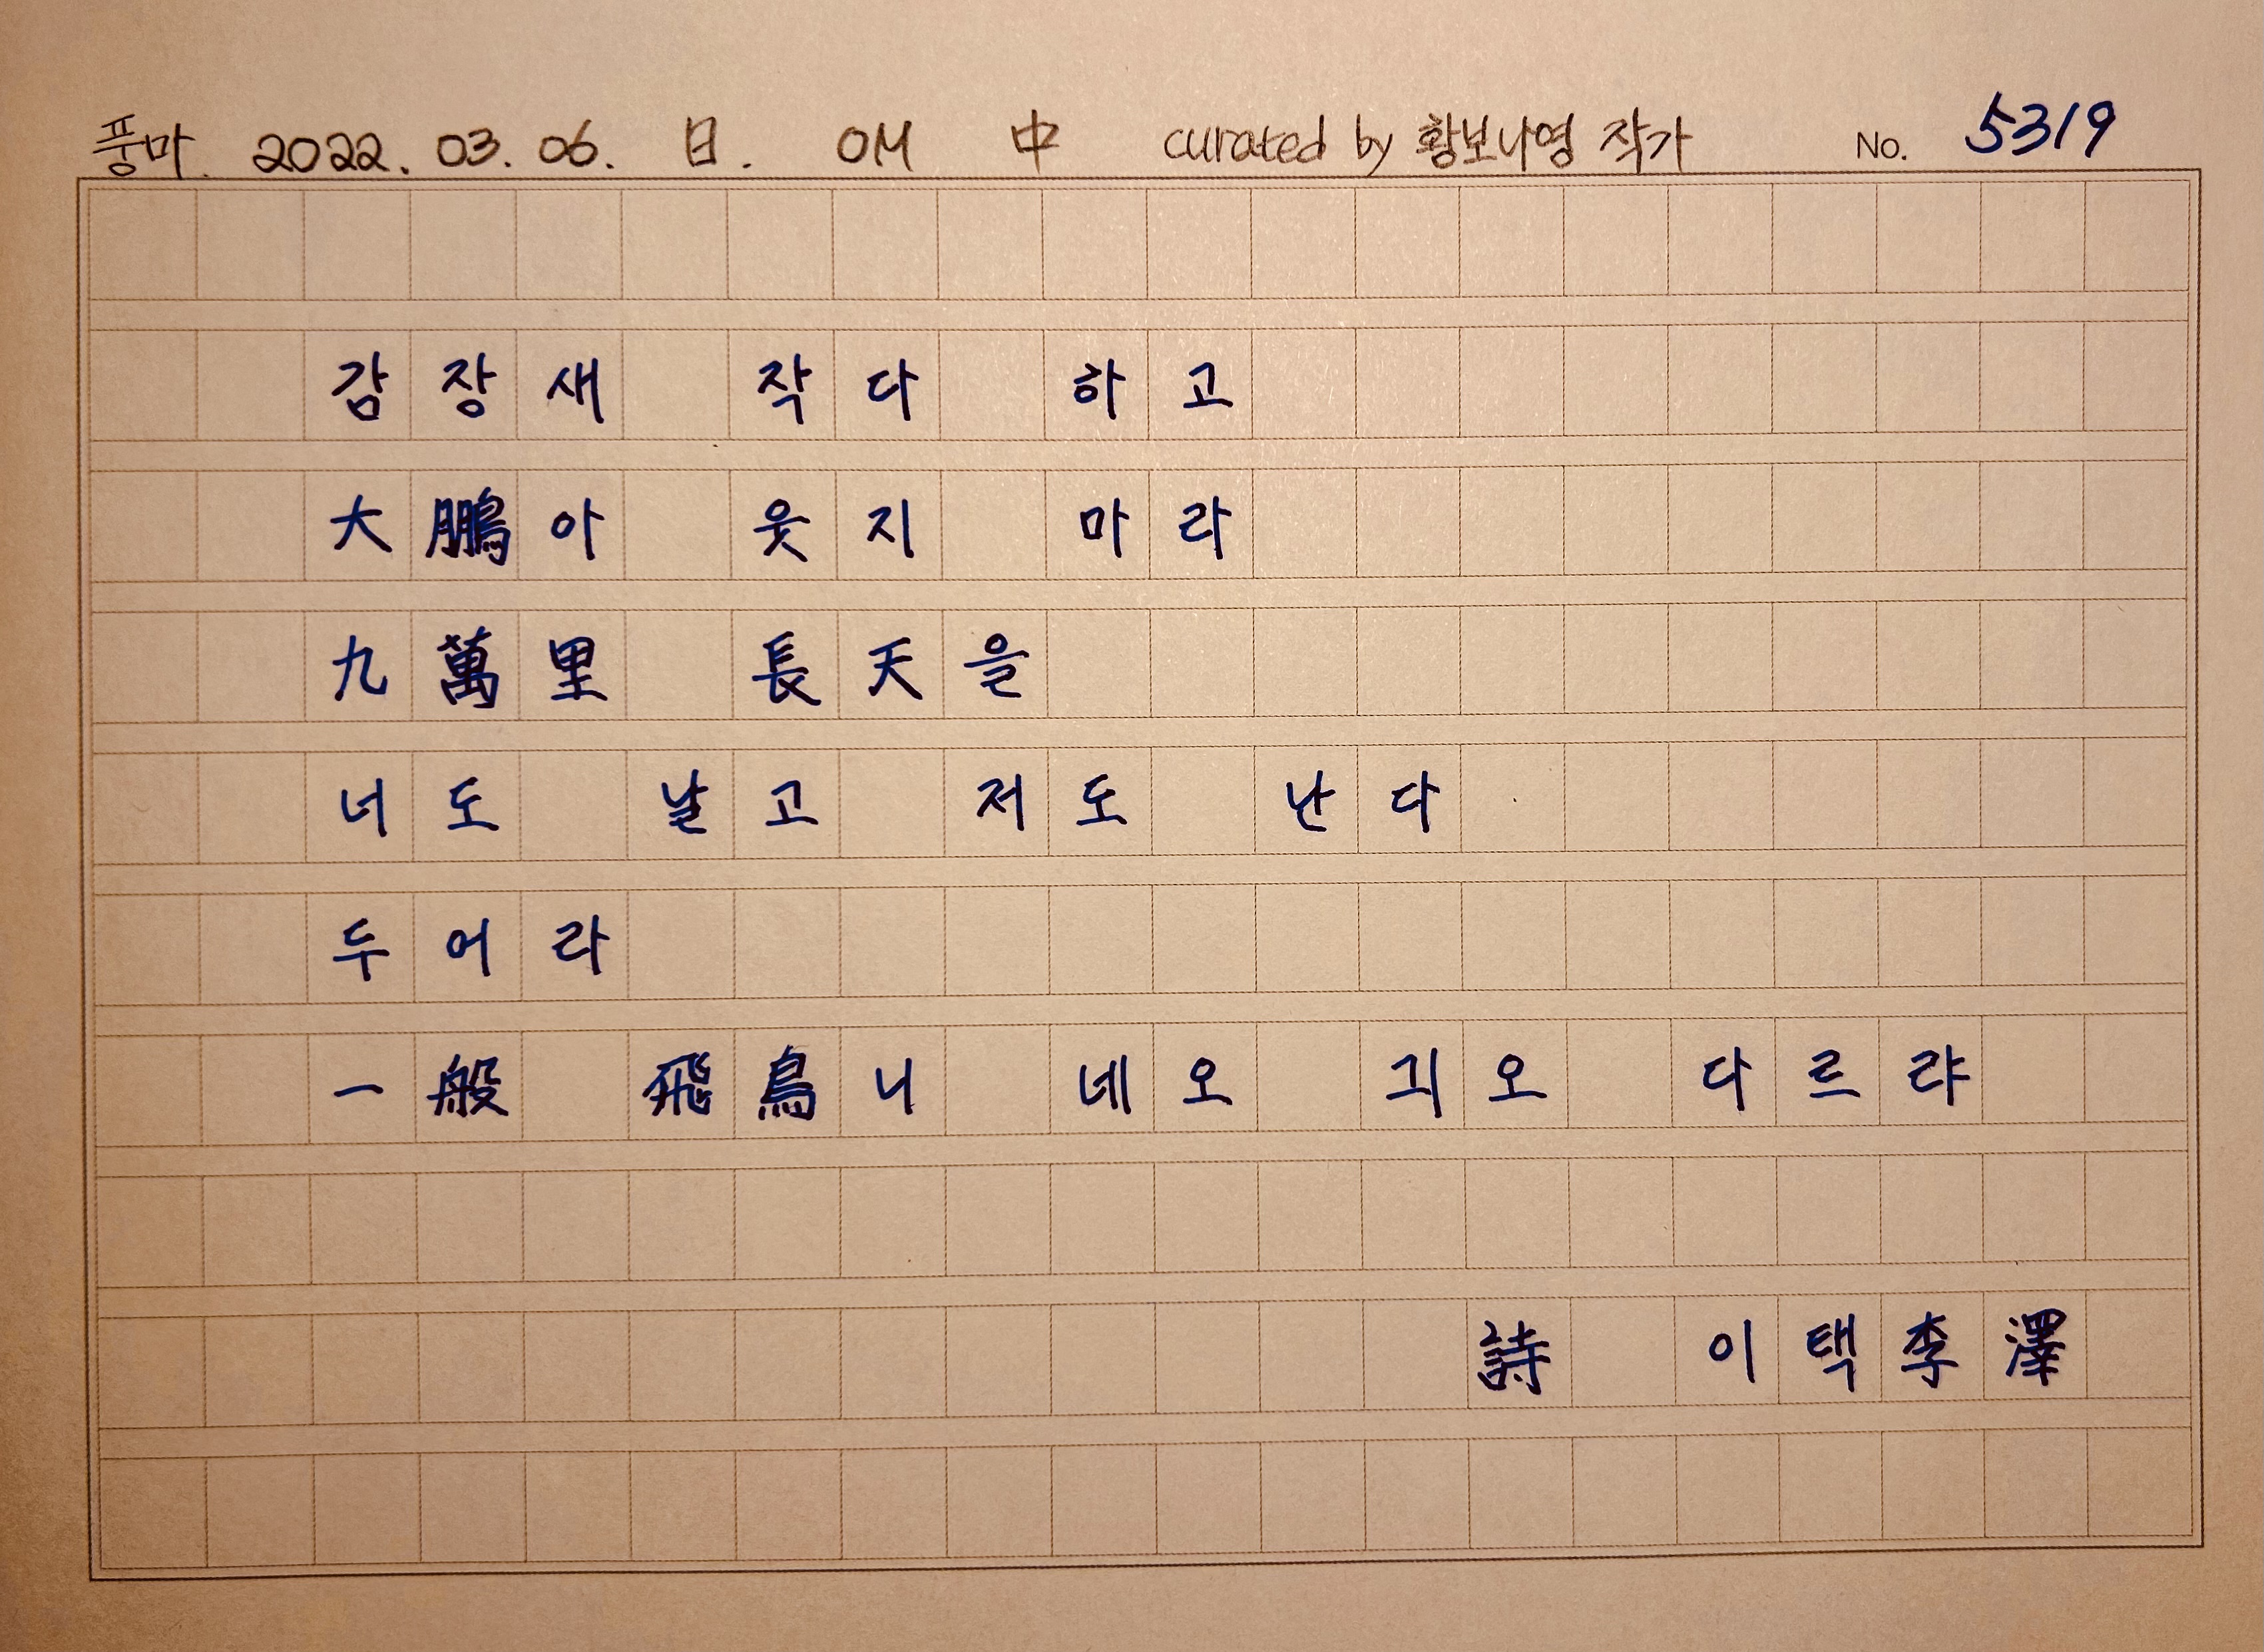 풍마. 2022. 03. 06. 日. OM 中 curated by 황보나영 작가 No. 5319
감장새 작다 하고
大鵬아 웃지 마라
九萬里 長天을
너도 날고 저도 난다
두어라
一般 飛鳥니 네오 긔오 다르랴
詩 이택李澤